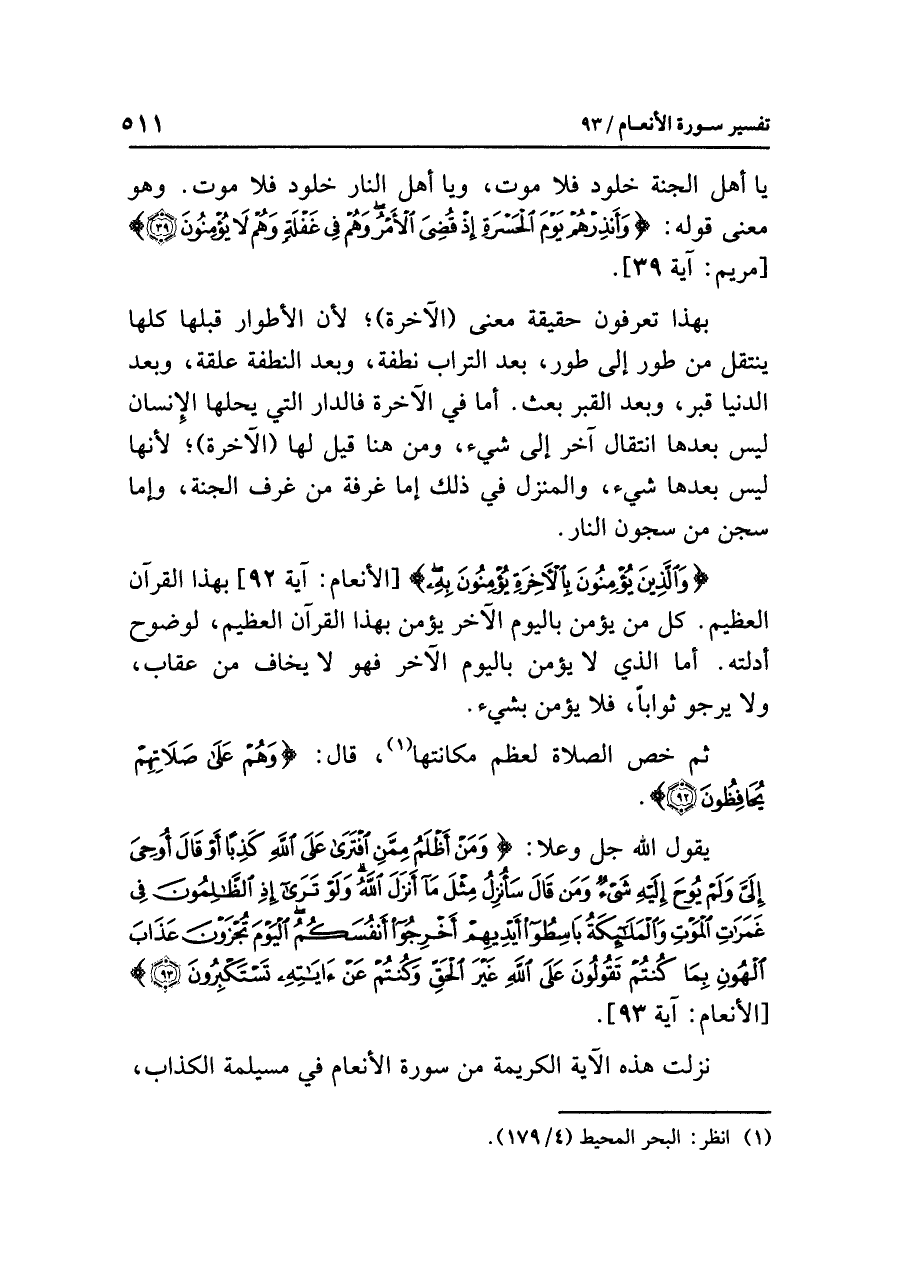 تفسير سـورة الأنعـام / ٩٣ ٥١١
يا أهل الجنة خلود فلا موت، ويا أهل النار خلود فلا موت. وهو
معنى قوله: ﴿وَأَنذِرْهُمْ يَوْمَ ٱلْحَسْرَةِ إِذْ قُضِىَ ٱلْأَمْرُ وَهُمْ فِى غَفْلَةٍ وَهُمْ لَا يُؤْمِنُونَ ٣٩﴾
[مريم: آية ٣٩].
بهذا تعرفون حقيقة معنى (الآخرة)؛ لأن الأطوار قبلها كلها
ينتقل من طور إلى طور، بعد التراب نطفة، وبعد النطفة علقة، وبعد
الدنيا قبر، وبعد القبر بعث. أما في الآخرة فالدار التي يحلها الإنسان
ليس بعدها انتقال آخر إلى شيء، ومن هنا قيل لها (الآخرة)؛ لأنها
ليس بعدها شيء، والمنزل في ذلك إما غرفة من غرف الجنة، وإما
سجن من سجون النار.
﴿وَٱلَّذِينَ يُؤْمِنُونَ بِٱلْآخِرَةِ يُؤْمِنُونَ بِهِۦۖ﴾ [الأنعام: آية ٩٢] بهذا القرآن
العظيم. كل من يؤمن باليوم الآخر يؤمن بهذا القرآن العظيم، لوضوح
أدلته. أما الذي لا يؤمن باليوم الآخر فهو لا يخاف من عقاب،
ولا يرجو ثواباً، فلا يؤمن بشيء.
ثم خص الصلاة لعظم مكانتها(١)، قال: ﴿وَهُمْ عَلَىٰ صَلَاتِهِمْ
يُحَافِظُونَ ٩٢﴾.
يقول الله جل وعلا: ﴿وَمَنْ أَظْلَمُ مِمَّنِ ٱفْتَرَىٰ عَلَى ٱللَّهِ كَذِبًا أَوْ قَالَ أُوحِىَ
إِلَىَّ وَلَمْ يُوحَ إِلَيْهِ شَىْءٌ وَمَن قَالَ سَأُنزِلُ مِثْلَ مَآ أَنزَلَ ٱللَّهُۗ وَلَوْ تَرَىٰٓ إِذِ ٱلظَّـٰلِمُونَ فِى
غَمَرَٰتِ ٱلْمَوْتِ وَٱلْمَلَـٰٓئِكَةُ بَاسِطُوٓا۟ أَيْدِيهِمْ أَخْرِجُوٓا۟ أَنفُسَكُمُۖ ٱلْيَوْمَ تُجْزَوْنَ عَذَابَ
ٱلْهُونِ بِمَا كُنتُمْ تَقُولُونَ عَلَى ٱللَّهِ غَيْرَ ٱلْحَقِّ وَكُنتُمْ عَنْ ءَايَـٰتِهِۦ تَسْتَكْبِرُونَ ٩٣﴾
[الأنعام: آية ٩٣].
نزلت هذه الآية الكريمة من سورة الأنعام في مسيلمة الكذاب،
(١) انظر: البحر المحيط (٤/ ١٧٩).